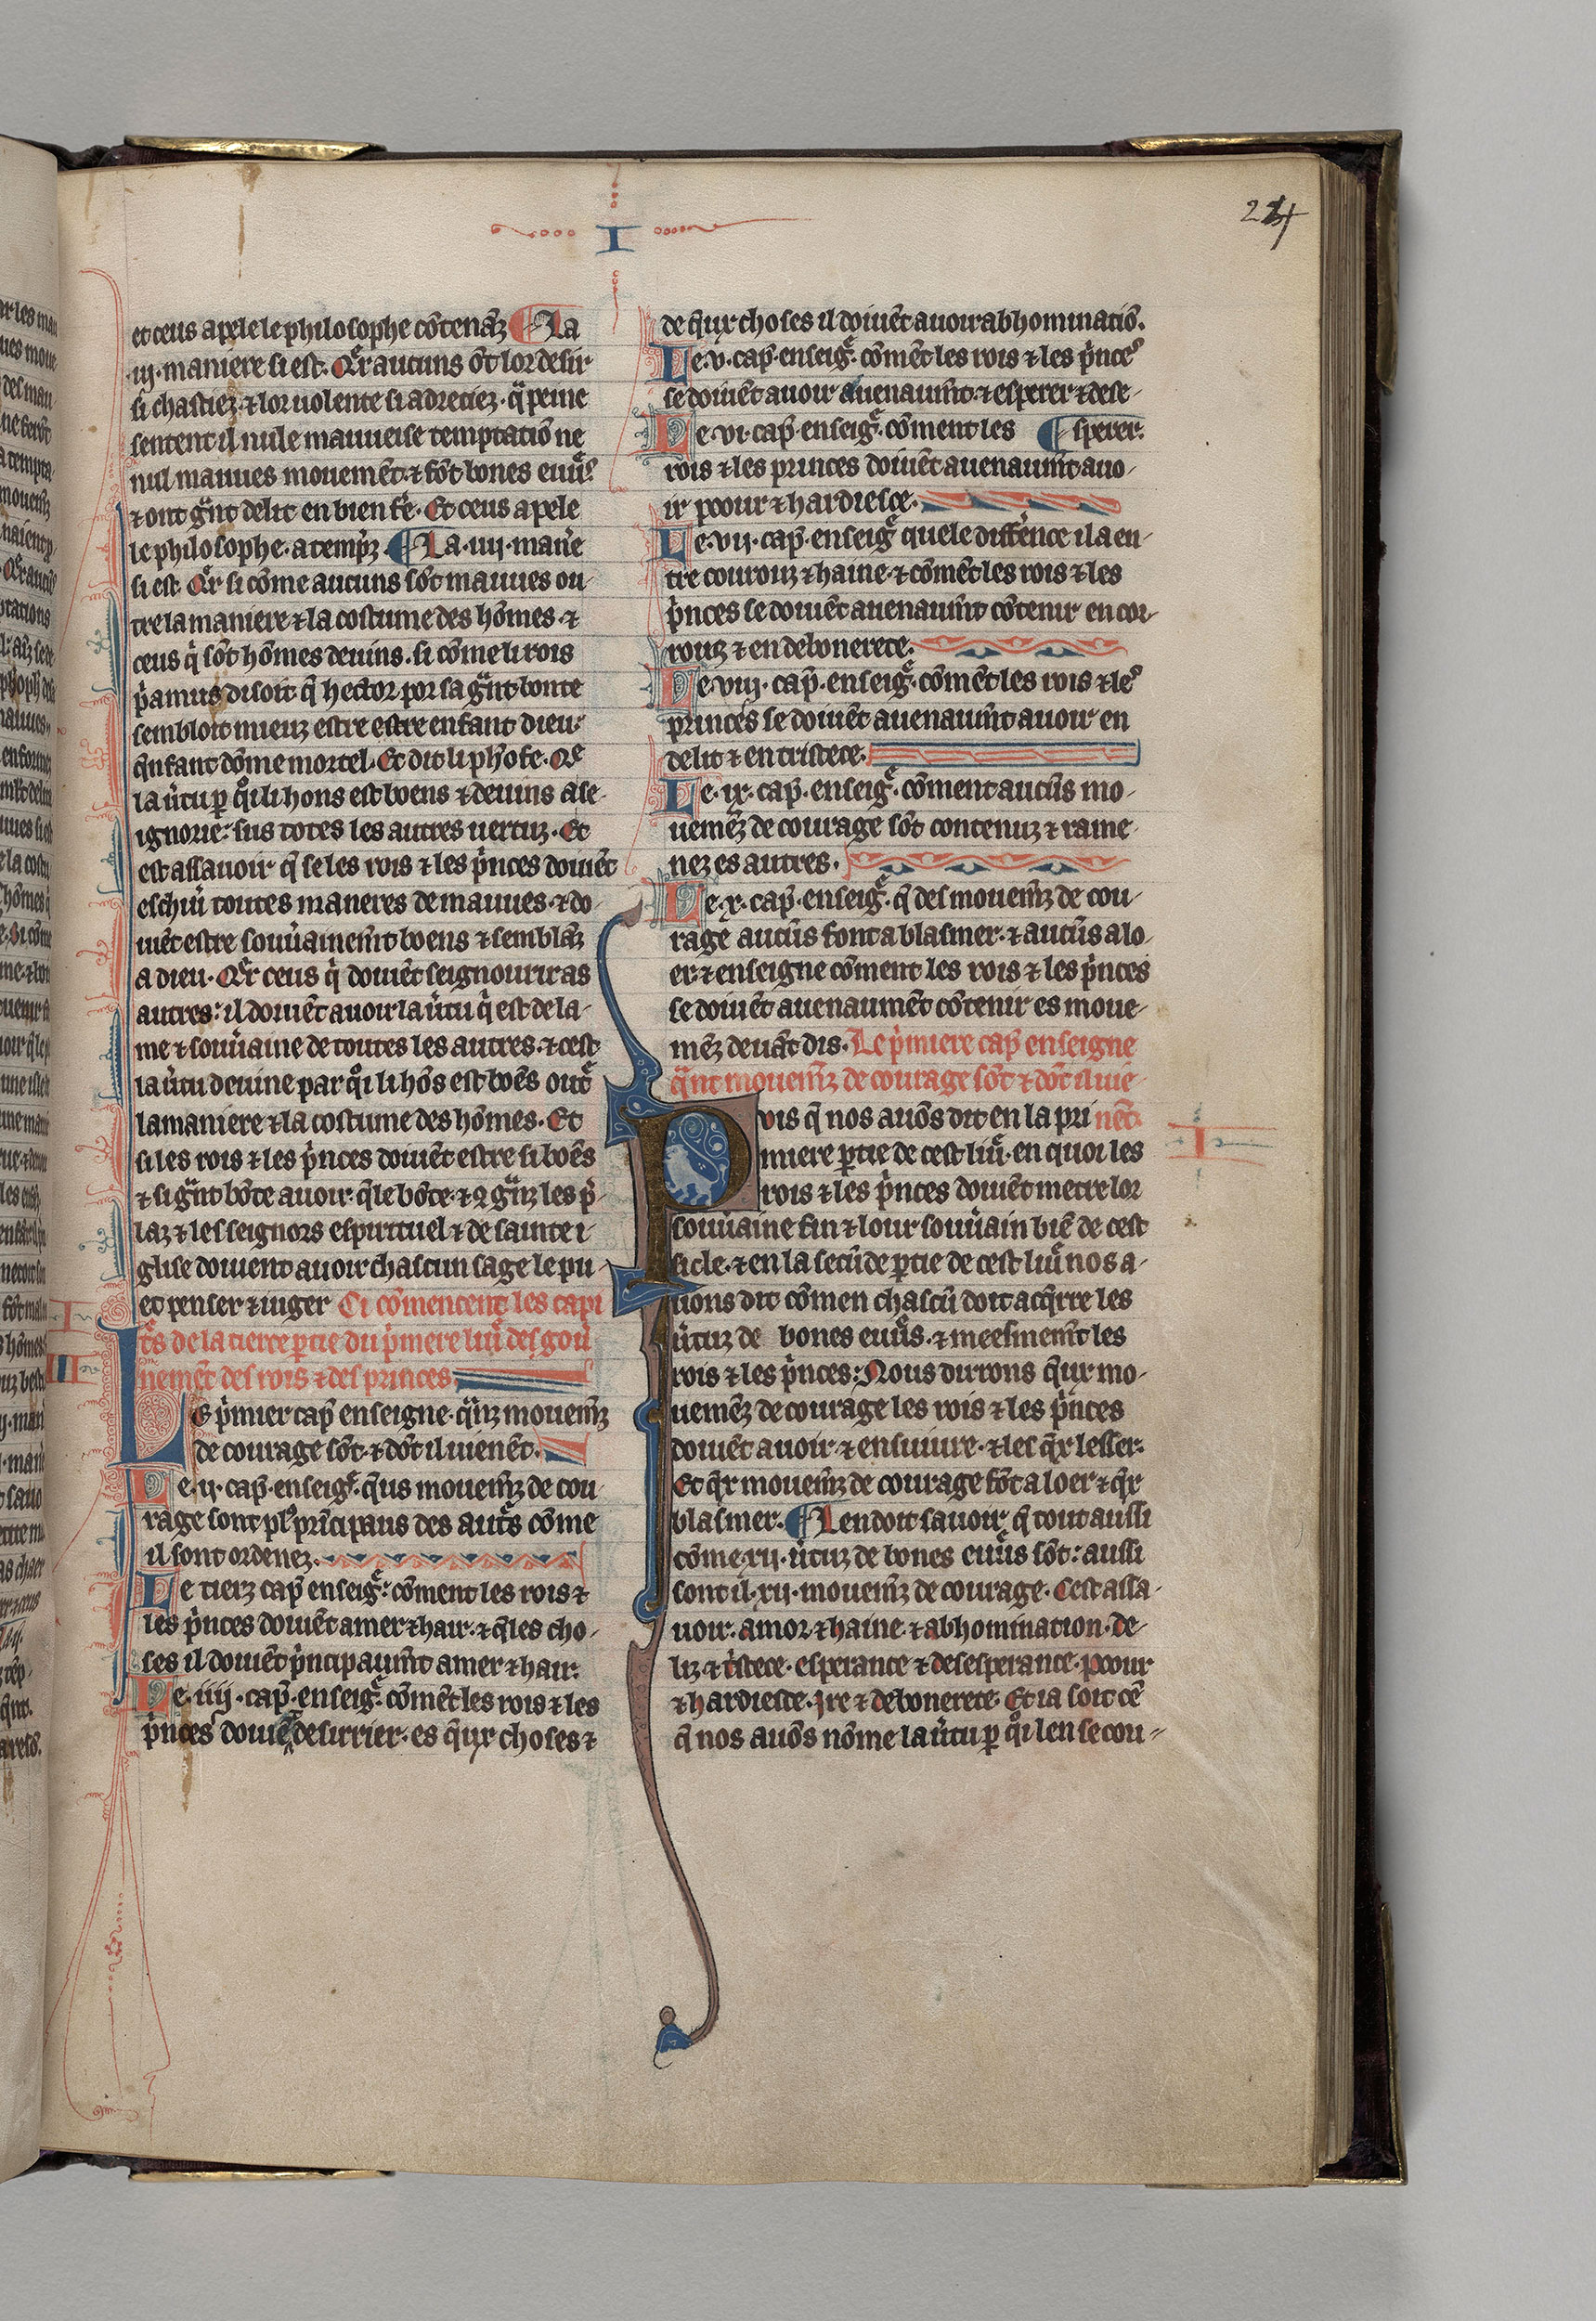 I
24
et ceus apele le philosophe cõtenãz ¶ La
.iij. maniere si est. Qͬ aucuns õt lor desir
si chastiez ⁊ lor uolente si adreciez . q̃ peine
sentent il nule mauueise temptatiõ ne
nul mauues mouemẽt ⁊ sõt bones euuͣˢ
⁊ ont gͣnt delit en bien fẽ. Et ceus apele
le philosophe . atemp̃z . ¶ La .iiij. mañe
si est. Qͬ si cõme aucuns sõt mauues ou-
tre la maniere ⁊ la costume des hõmes . ⁊
ceus q̇ sõt hõmes deuins . si cõme li rois
p̓amus disoit q̃ hector por sa gͣnt bonte
sembloit mieuz estre estre enfant dieu:
q̃nfant dõme mortel. Et dit li ph̓ofe. Qͤ
la ũtu ꝑ qͦi li hons est boens ⁊ deuins a se-
ignorie: sus totes les autres uertuz. Et
est assauoir q̃ se les rois ⁊ les p̓nces doiuẽt
eschiũ toutes maneres de mauues . ⁊ do-
iuẽt estre souũainem̃t boens ⁊ semblãz
a dieu. Qͬ ceus q̇ doiuẽt seignourir as
autres: il doiuẽt auoir la ũtu q̇ est dela-
me ⁊ souũaine de toutes les autres . ⁊ cest
la ũtu deuine par qͦi li hõs est boẽs outͤ
la maniere ⁊ la costume des hõmes . Et
si les rois ⁊ les p̓nces doiuẽt estre si boẽs
⁊ si gͣnt bõte auoir. q̃le bõte . ⁊ 9 gͣnz les p̓-
laz ⁊ les seignors espirituel ⁊ de sainte i-
glise doiuent auoir chascun sage le pu-
et penser ⁊ iuger Ci cõmencent les capi
tͤs de la tierce ꝑtie du p̓mere liuͤ des gou̓
nemẽt des rois ⁊ des princes
Le p̓mier cap̃ enseigne . qͣnz mouem̃z
de courage sõt . ⁊ dõt il uienẽt.
Le .ij. cap̃ . enseigͤ. q̃us mouem̃z de cou-
rage sont plꝰ prĩcipaus des autͤs cõme
il sont ordenez.
Le tierz cap̃ enseigͤ: cõment les rois ⁊
les p̓nces doiuẽt amer ⁊ hair. ⁊ q̃les cho-
ses il doiuẽt p̓ncipaum̃t amer ⁊ hair.
Le .iiij. cap̃ . enseigͤ. cõmẽt les rois ⁊ les
p̓nces doiuẽ desirrier . es q̃ux choses ⁊
de q̃ux choses il doiuẽt auoir abhominatiõ.
Le .v. cap̃ . enseigͤ. cõmẽt les rois ⁊ les p̓nceˢ
se doiuẽt auoir auenaum̃t . ⁊ esperer ⁊ dese-
Le .vi. cap̃ . enseigͤ. cõment les ¶ sperer.
rois ⁊ les princes doiuẽt auenaum̃t auo-
ir poour ⁊ hardiesce.
Le .vij. cap̃ . enseigͤ quele diffẽnce il a en-
tre courouz ⁊ haine . ⁊ cõmẽt les rois ⁊ les
p̓nces se doiuẽt auenaum̃t cõtenir en cor-
rouz ⁊ en debonerete.
Le .viij. cap̃ . enseigͤ. cõmẽt les rois ⁊ leˢ
princes se doiuẽt auenaum̃t auoir en
delit ⁊ en tristece.
Le .ix. cap̃ . enseigͤ. cõment aucũs mo-
uemẽz de courage sõt contenuz ⁊ rame-
nez es autres.
Le .x. cap̃ . enseigͤ. q̃ des mouem̃z de cou-
rage aucũs font a blasmer . ⁊ aucũs a lo-
er. ⁊ enseigne cõment les rois ⁊ les p̓nces
se doiuẽt auenaumẽt cõtenir es moue-
mẽz deuãt dis. Le p̓miere cap̃ enseigne
qͣnt mouem̃z de courage sõt ⁊ dõt il uie-
Puis q̃ nos auõs dit en la pri nẽt.
miere ꝑtie de cest liuͤ . en quoi les
rois ⁊ les p̓nces doiuẽt metre lor
souũaine fin ⁊ lour souũain biẽ de cest
siecle . ⁊ en la secũde ꝑtie de cest liuͤ nos a-
uons dit cõmen chascũ doit acq̃rre les
ũtuz de bones euuͤs . ⁊ meesmem̃t les
rois ⁊ les p̓nces: Nous dirrons q̃ux mo-
uemẽz de courage les rois ⁊ les p̓nces
doiuẽt auoir ⁊ ensuiure . ⁊ les q̃x lesser.
Et q̃x mouem̃z de courage sõt a loer ⁊ q̃x
blasmer. ¶ Len doit sauoir q̃ tout aussi
cõme .xij. ũtuz de bones euuͤs sõt: aussi
sont il .xij. mouem̃z de courage . Cest assa-
uoir . amor ⁊ haine . ⁊ abhomination . de-
liz ⁊ tͥstece . esperance ⁊ desesperance . poour
⁊ hardiesce . Ire ⁊ debonerete . Et ia soit cẽ
q̃ nos auõs nõme la ũtu ꝑ qͦi len se cou-
I